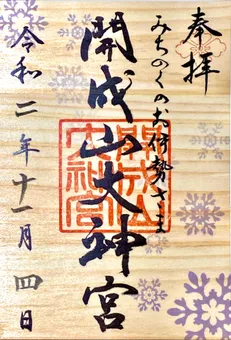 奉拝
みちのくのお伊勢さま
開成山大神宮
開成山大神宮
令和二年十一月四日